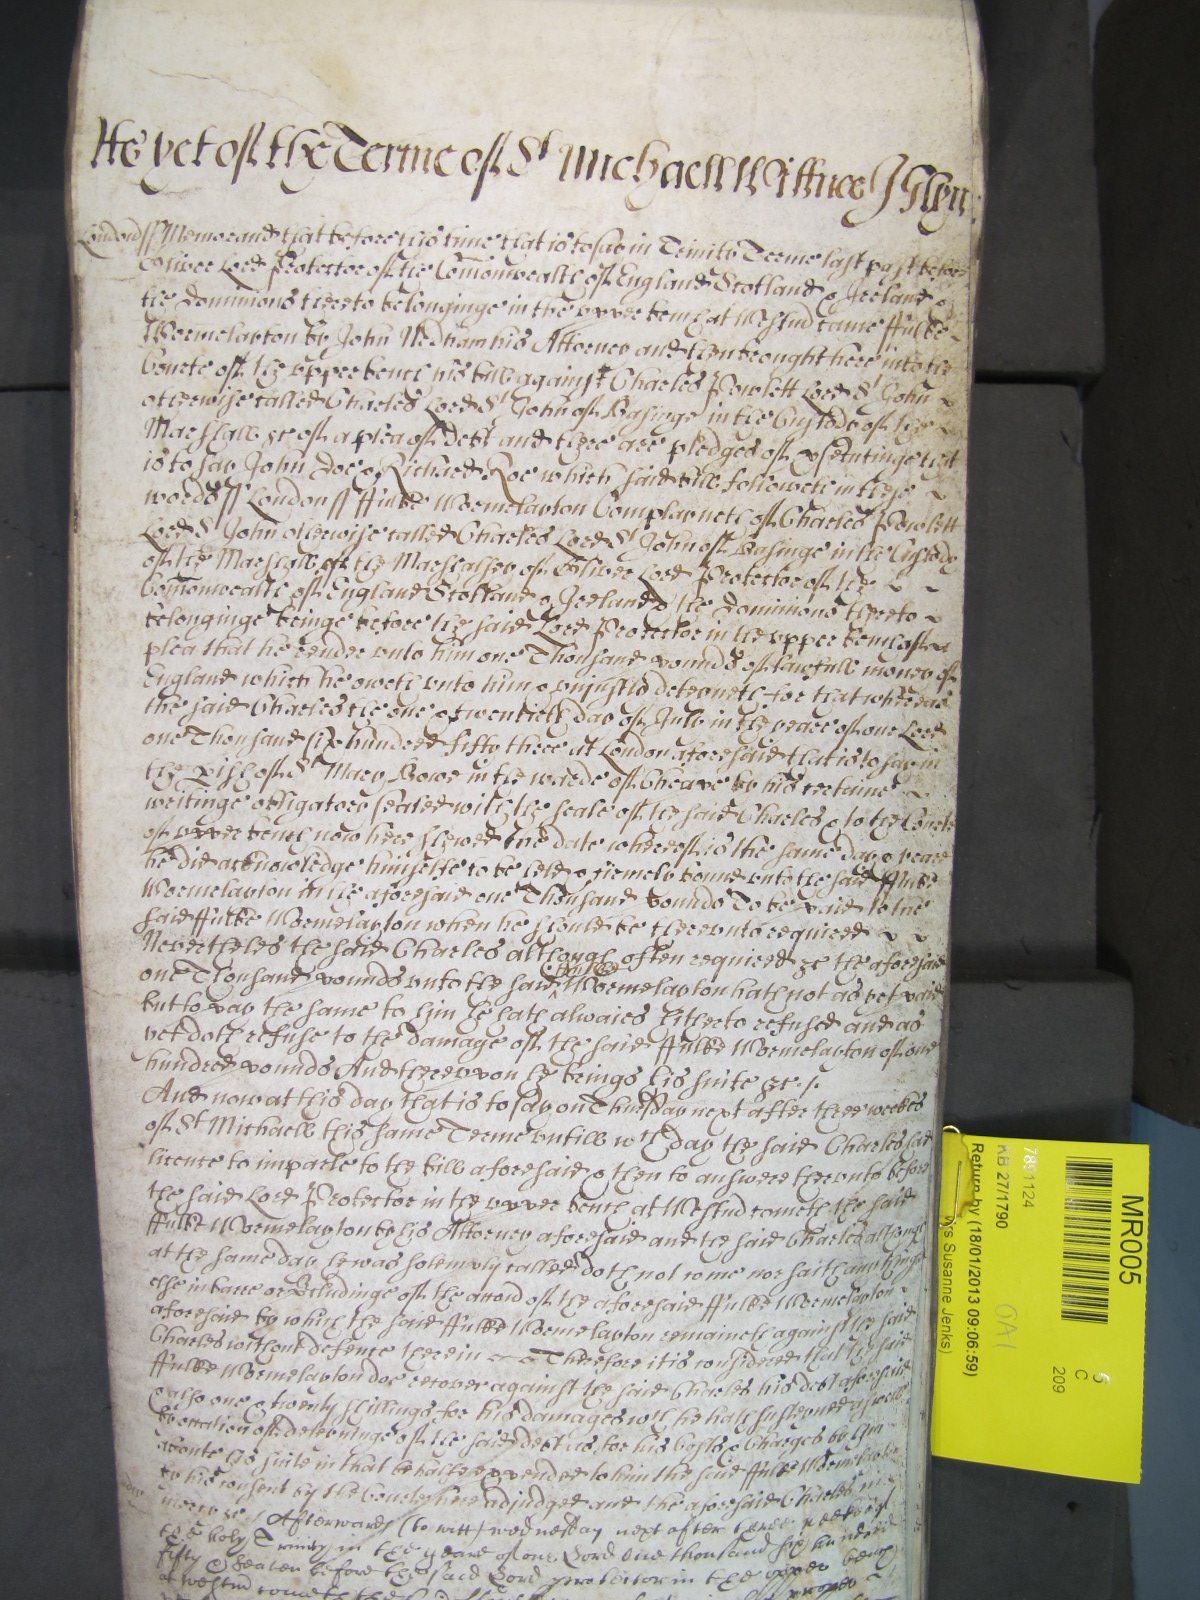 As yet of the Terme of St Michaell Wittnes J Glyn:
London ss Memorand that before this time that is to say in Trinity Terme last past before
Oliver Lord Protector of the Comonwealth of England Scotland & Ireland &
the dominions thereto belonginge in the upper bench at Westmr came ffulke
Wormelayton by John Nedham his Attorney and then brought here into the
Courte of the upper bench his bill against Charles Powlett Lord St John
otherwise called Charles Lord St John of Basinge in the Custody of the
Marshall &c of a plea of debt and there are pledges of prsecutinge that
is to say John Doe & Richard Roe which said bill followeth in these
words ss London ss ffulke Wormelayton Complayneth of Charles Powlett
Lord St John otherwise called Charles Lord St John of Basinge in the Custody
of the Marshall of the Marshalsey of Oliver Lord Protector of the
Comonwealth of England Scotland & Ireland & the dominions thereto
belonginge beinge before the said Lord Protector in the upper bench of a
plea that he render unto him one Thousand pounds of lawfull money of
England which he oweth unto him & uniustly deteyneth for that whereas
the said Charles the one & twentieth day of July in the yeare of our Lord
one Thousand six hundred fifty three at London aforesaid that is to say in
the prish of St Mary Bowe in the warde of Cheape by his certaine
writinge obligatory sealed with the seale of the said Charles & to the Courte
of upper bench now here shewed the date whereof is the same day & yeare
he did acknowledge himselfe to be held & firmely bound unto the said ffulke
Wormelayton in the aforesaid one Thousand pounds To be paid to the
said ffulke Wormelayton when he should be thereunto required
Neverthelès the said Charles although often required &c the aforesaid
one Thousand pounds unto the said ffulke Wormelayton hath not as yet paid
but to pay the same to him he hath alwaies hitherto refused and as
yet doth refuse to the damage of the said ffulke Wormelayton of one
hundred pounds And thereupon he brings his suite &c.
And now at this day that is to say on Thursday next after three weekes
of St Michaell this same Terme untill wch day the said Charles had
licence to imparle to the bill aforesaid & then to answere thereunto before
the said Lord Protector in the upper bench at Westmr cometh the said
ffulke Wormelayton by his Attorney aforesaid and the said Charles although
at the same day he was solempnly called doth not come nor saith any thinge
else in barre or precludinge of the accon of the aforesaid ffulke Wormelayton
aforesaid by which the said ffulke Wormelayton remaineth against the said
Charles without defence therein Therefore it is considered that the said
ffulke Wormelayton doe recover against the said Charles his debt aforesaid
& also one & twenty shillings for his damages wch he hath susteyned aswell
by occation of deteyninge of the said debt as for his Costs & Charges by him
aboute his suite in that behalfe expended to him the said ffulke Wormelayton
by his consent by the Courte here adjudged and the aforesaid Charles in
mercy &c. Afterwards (to witt) wednesday next after three weekes of
the holy Trinity in the yeare of our Lord One thousand six hundred
fifty & seaven before the said Lord protector in the upper bench
at westmr cometh the said
MR005
6
C
209
7851124
KB 27/1790
Return by (18/01/2013 09:06:59)
Mrs Susanne Jenks)